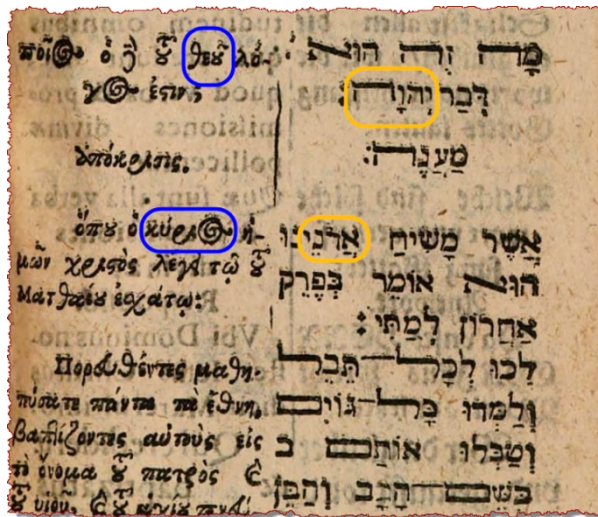 ποῖος ὁ τοῦ θεοῦ λό-
γος ἐστιν;
ὑπόκρισις.
ὅπου ὁ κύριος ἡ-
μῶν χριστὸς λέγει τῷ τοῦ
Ματθαίου ἐσχάτῳ:
Πορευθέντες μαθη-
τεύσατε πάντα τὰ ἔθνη,
βαπτίζοντες αὐτοὺς εἰς
τὸ ὄνομα τοῦ πατρὸς καὶ
τοῦ υἱοῦ, καὶ τοῦ ἁγίου
מָה זֶה הוּא
דְּבַר יְהוָֹה:
מַעֲנֶה:
אֲשֶׁר מָשִׁיחַ אֲדֹנֵינוּ
הוּא אוֹמֵר בְּפֶרֶק
אַחֲרוֹן לְמַתַּי:
לְכוּ לְכָל־תֵּבֵל
וְלַמְּדוּ כָּל־גּוֹיִם
וְטַבְּלוּ אוֹתָם ב
בְּשֵׁם הָאָב וְהַבֵּן